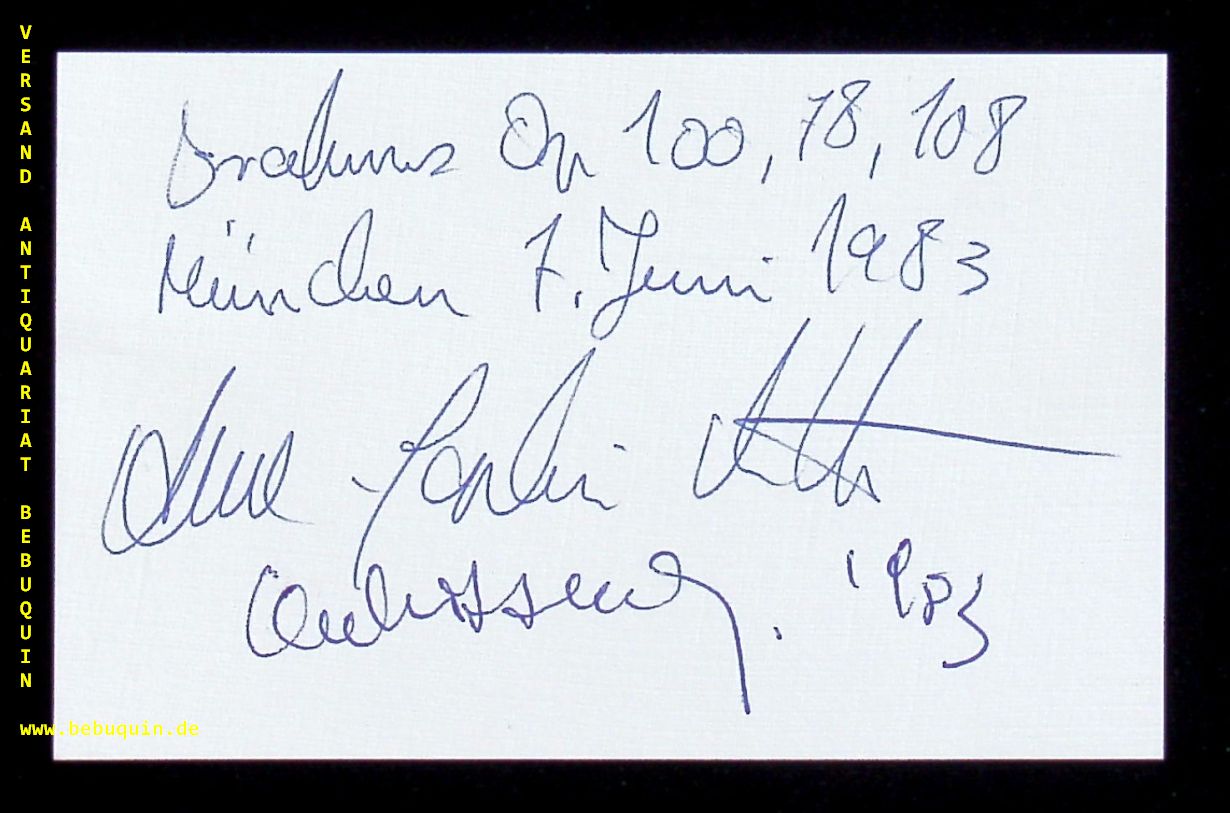 VERSAND ANTIQUARIAT BEBUQUIN
Brahms Op 100, 78, 108
München 7. Juni 1983
Anne Sophie Mutter
1983
www.bebuquin.de